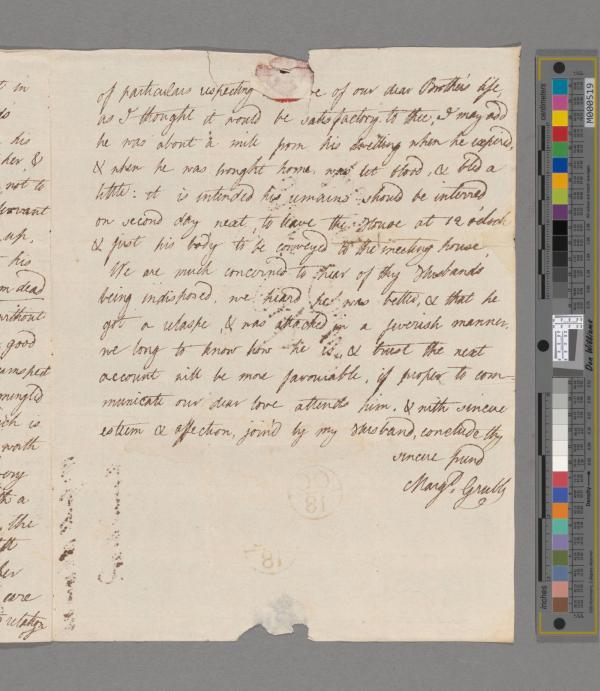 t in
his
her, &
not to
servant
up,
his
m dead
without
good
mingled
ch is
worth
very
th a
the
her
care
of particulars respecting e of our dear Brother's life,
as I thought it would be satisfactory to thee; I may add
he was about a mile from his dwelling when he expired,
& when he was brought home was let blood, & bled a
little: it is intended his remains should be interred
on second day next, to leave the House at 12 oclock
& first his body to be conveyed to the meeting house
We are much concerned to hear of thy Husbands
being indisposed, we heard he was better, & that he
got a relapse, & was attacked in a feverish manner,
we long to know how he is, & trust the next
account will be more favourable, if proper to com=
municate our dear love attends him, & with sincere
esteem & affection, join'd by my Husband, conclude thy
sincere friend
Margt. Grubb
81
81
centimeters
M000519
Don Williams
Density
inches